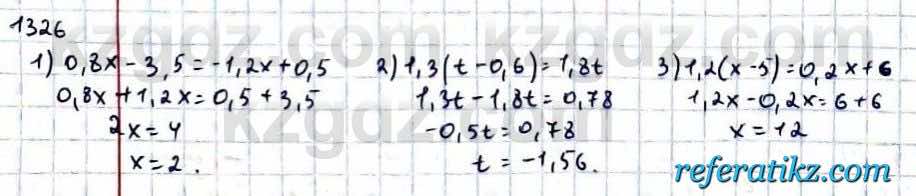 1326
1) 0,8x - 3,5 = -1,2x + 0,5
0,8x + 1,2x = 0,5 + 3,5
2x = 4
x = 2.
2) 1,3(t - 0,6) = 1,8t
1,3t - 1,8t = 0,78
-0,5t = 0,78
t = -1,56.
3) 1,2(x - 5) = 0,2x + 6
1,2x - 0,2x = 6 + 6
x = 12
kzgdz.com
referatikz.com